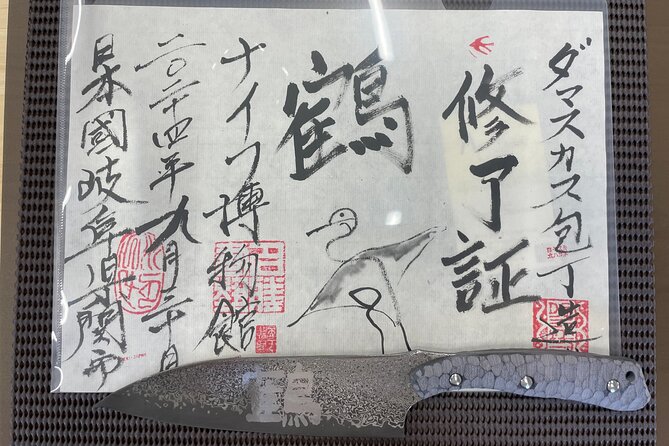 ダマスカス包丁造
修了証
鶴
ナイフ博物館
二〇二十四年九月二十日
日本國岐阜県関市